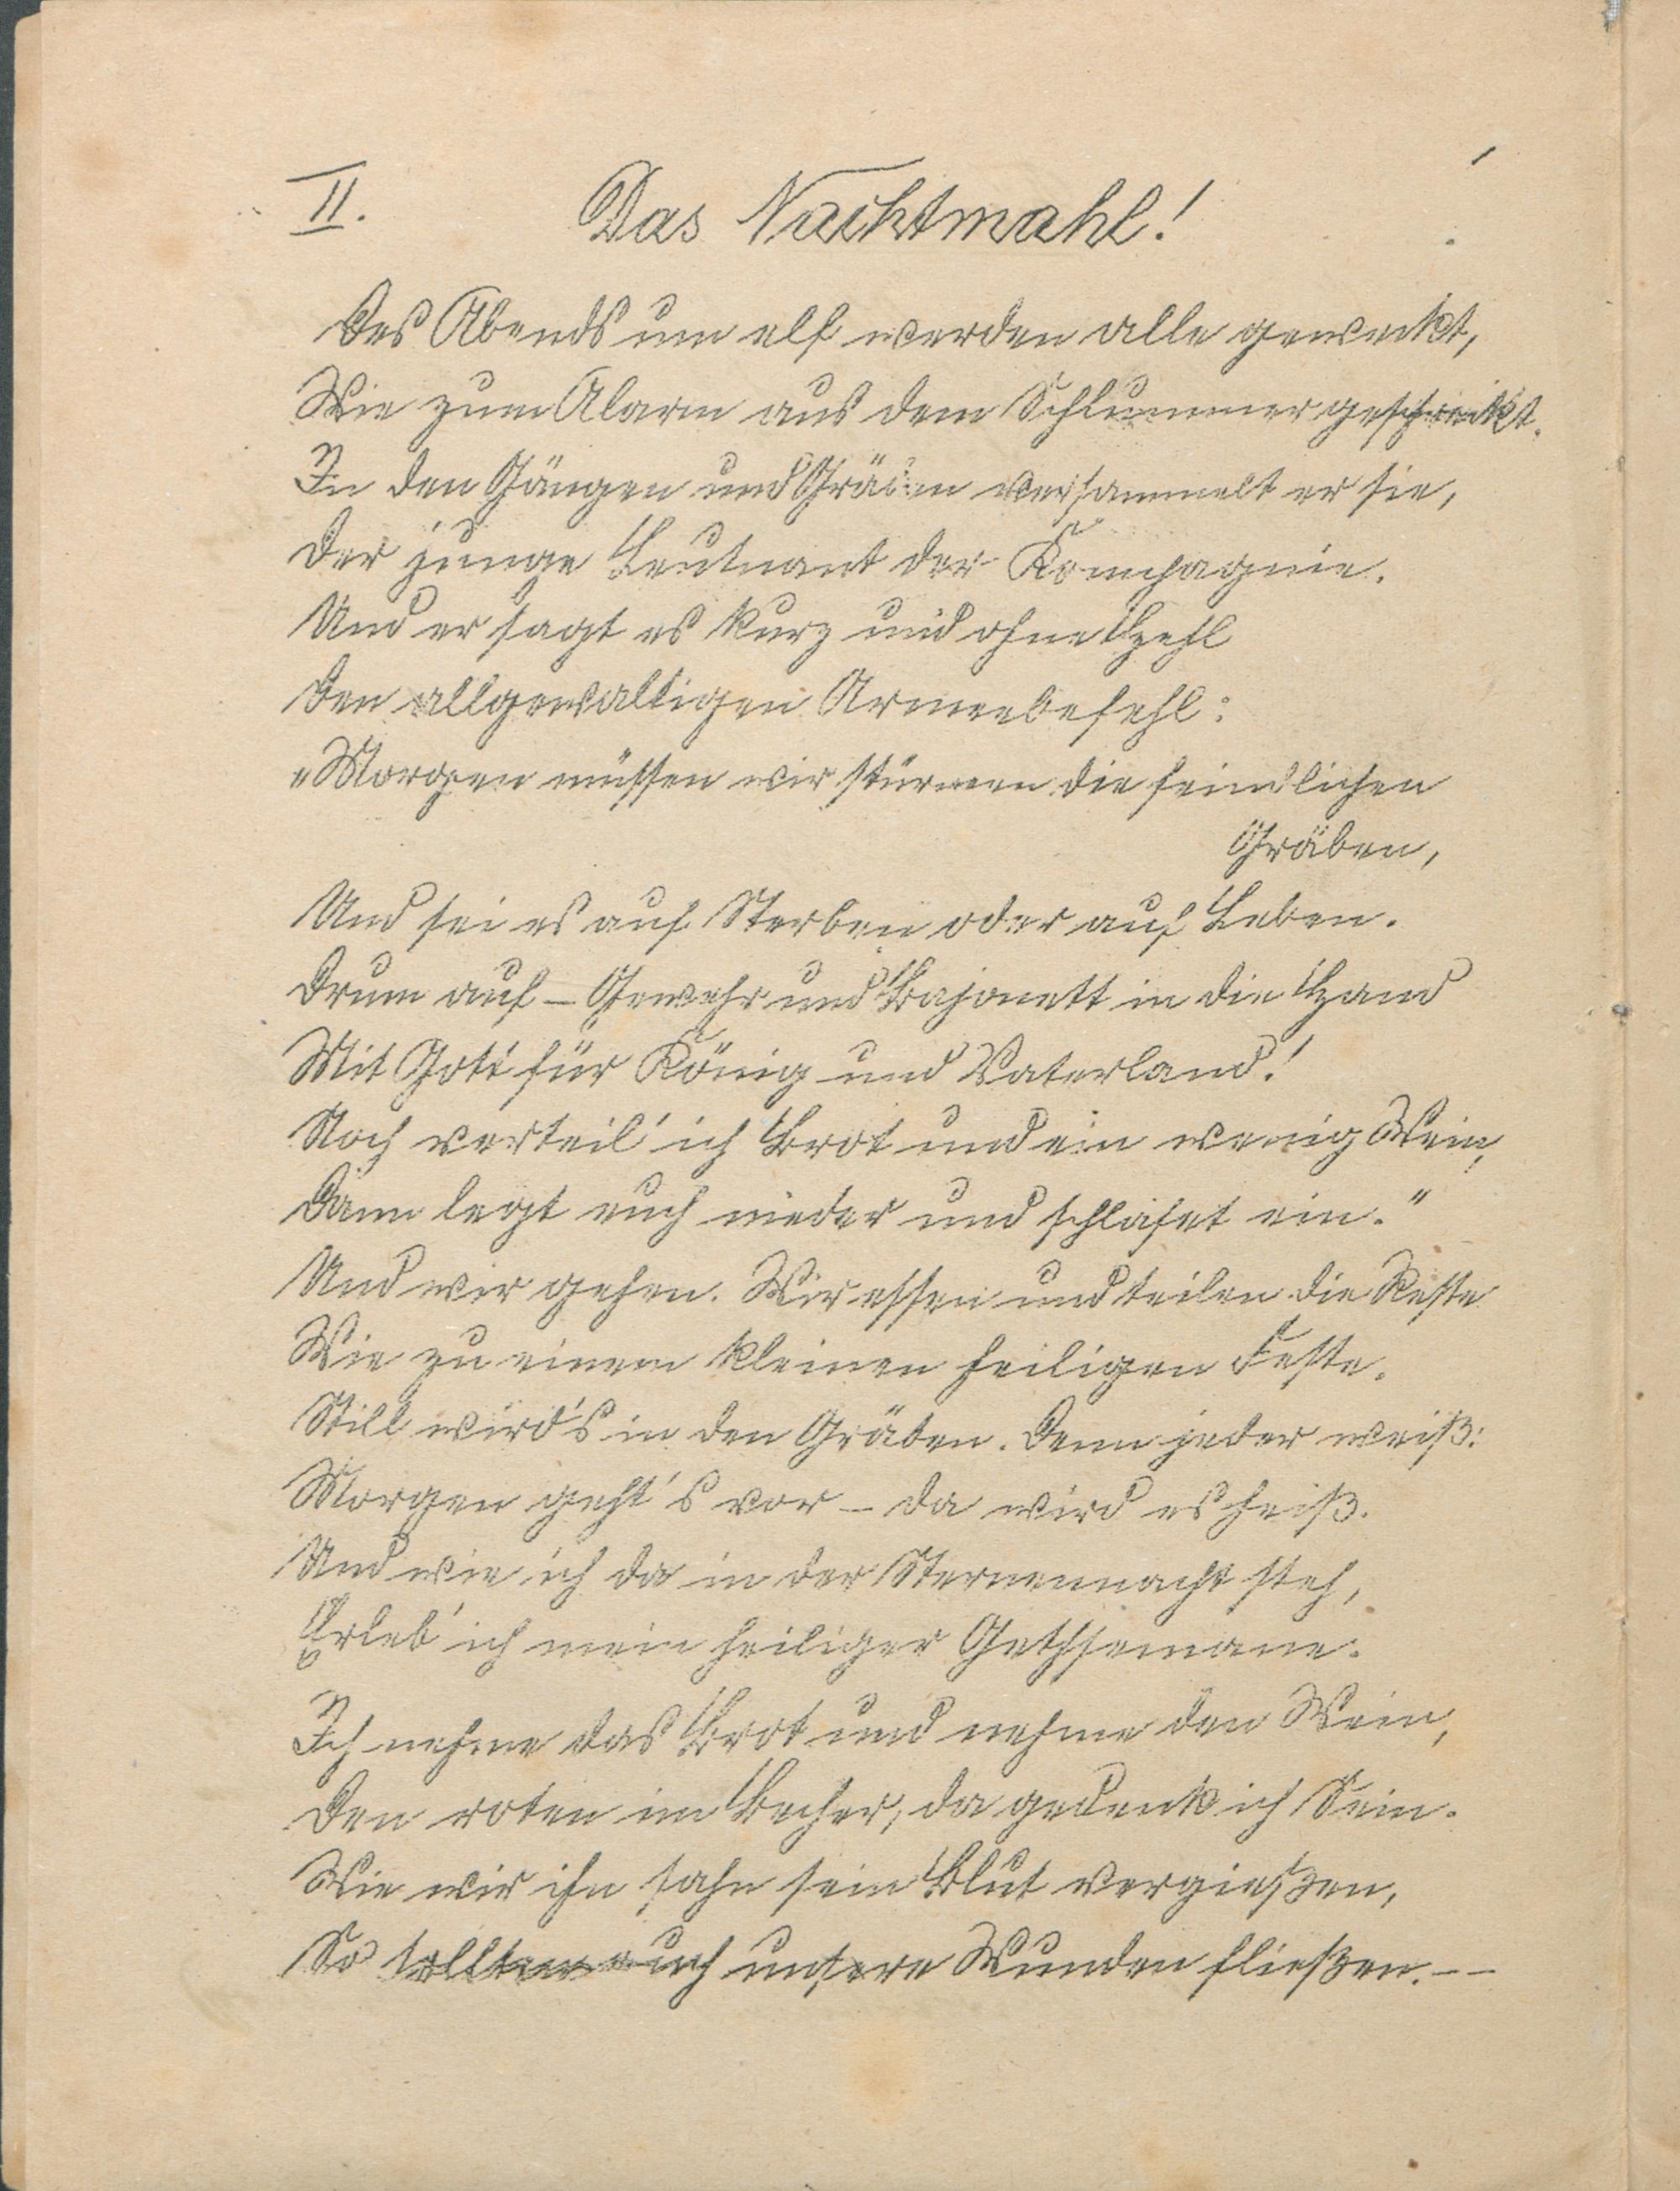 II. Das Nachtmahl!
Des Abends um elf werden alle geweckt,
Wie zum Alarm aus dem Schlummer geschreckt.
In den Gängen und Gräben versammelt er sie,
Der junge Leutnant der Kompagnie.
Und er sagt es kurz und ohne Hehl
Den allgewaltigen Armeebefehl:
„Morgen müssen wir stürmen die feindlichen
Gräben,
Und sei es auf Sterben oder auf Leben.
Drum auf – Gewehr und Bajonett in die Hand
Mit Gott für König und Vaterland!
Noch verteil' ich Brot und ein wenig Wein,
Dann legt euch nieder und schlafet ein."
Und wir gehen. Wir essen und teilen die Reste
Wie zu einem kleinen heiligen Feste.
Still wird's in den Gräben. Denn jeder weiß:
Morgen geht's vor – da wird es heiß.
Und wie ich da in der Sternennacht steh,
Erleb' ich mein heiliger Gethsemane.
Ich nehme das Brot und nehme den Wein,
Den roten im Becher, da gedenk ich Sein.
Wie wir ihn sahn sein Blut vergießen,
So sollten auch unsere Wunden fließen. – –